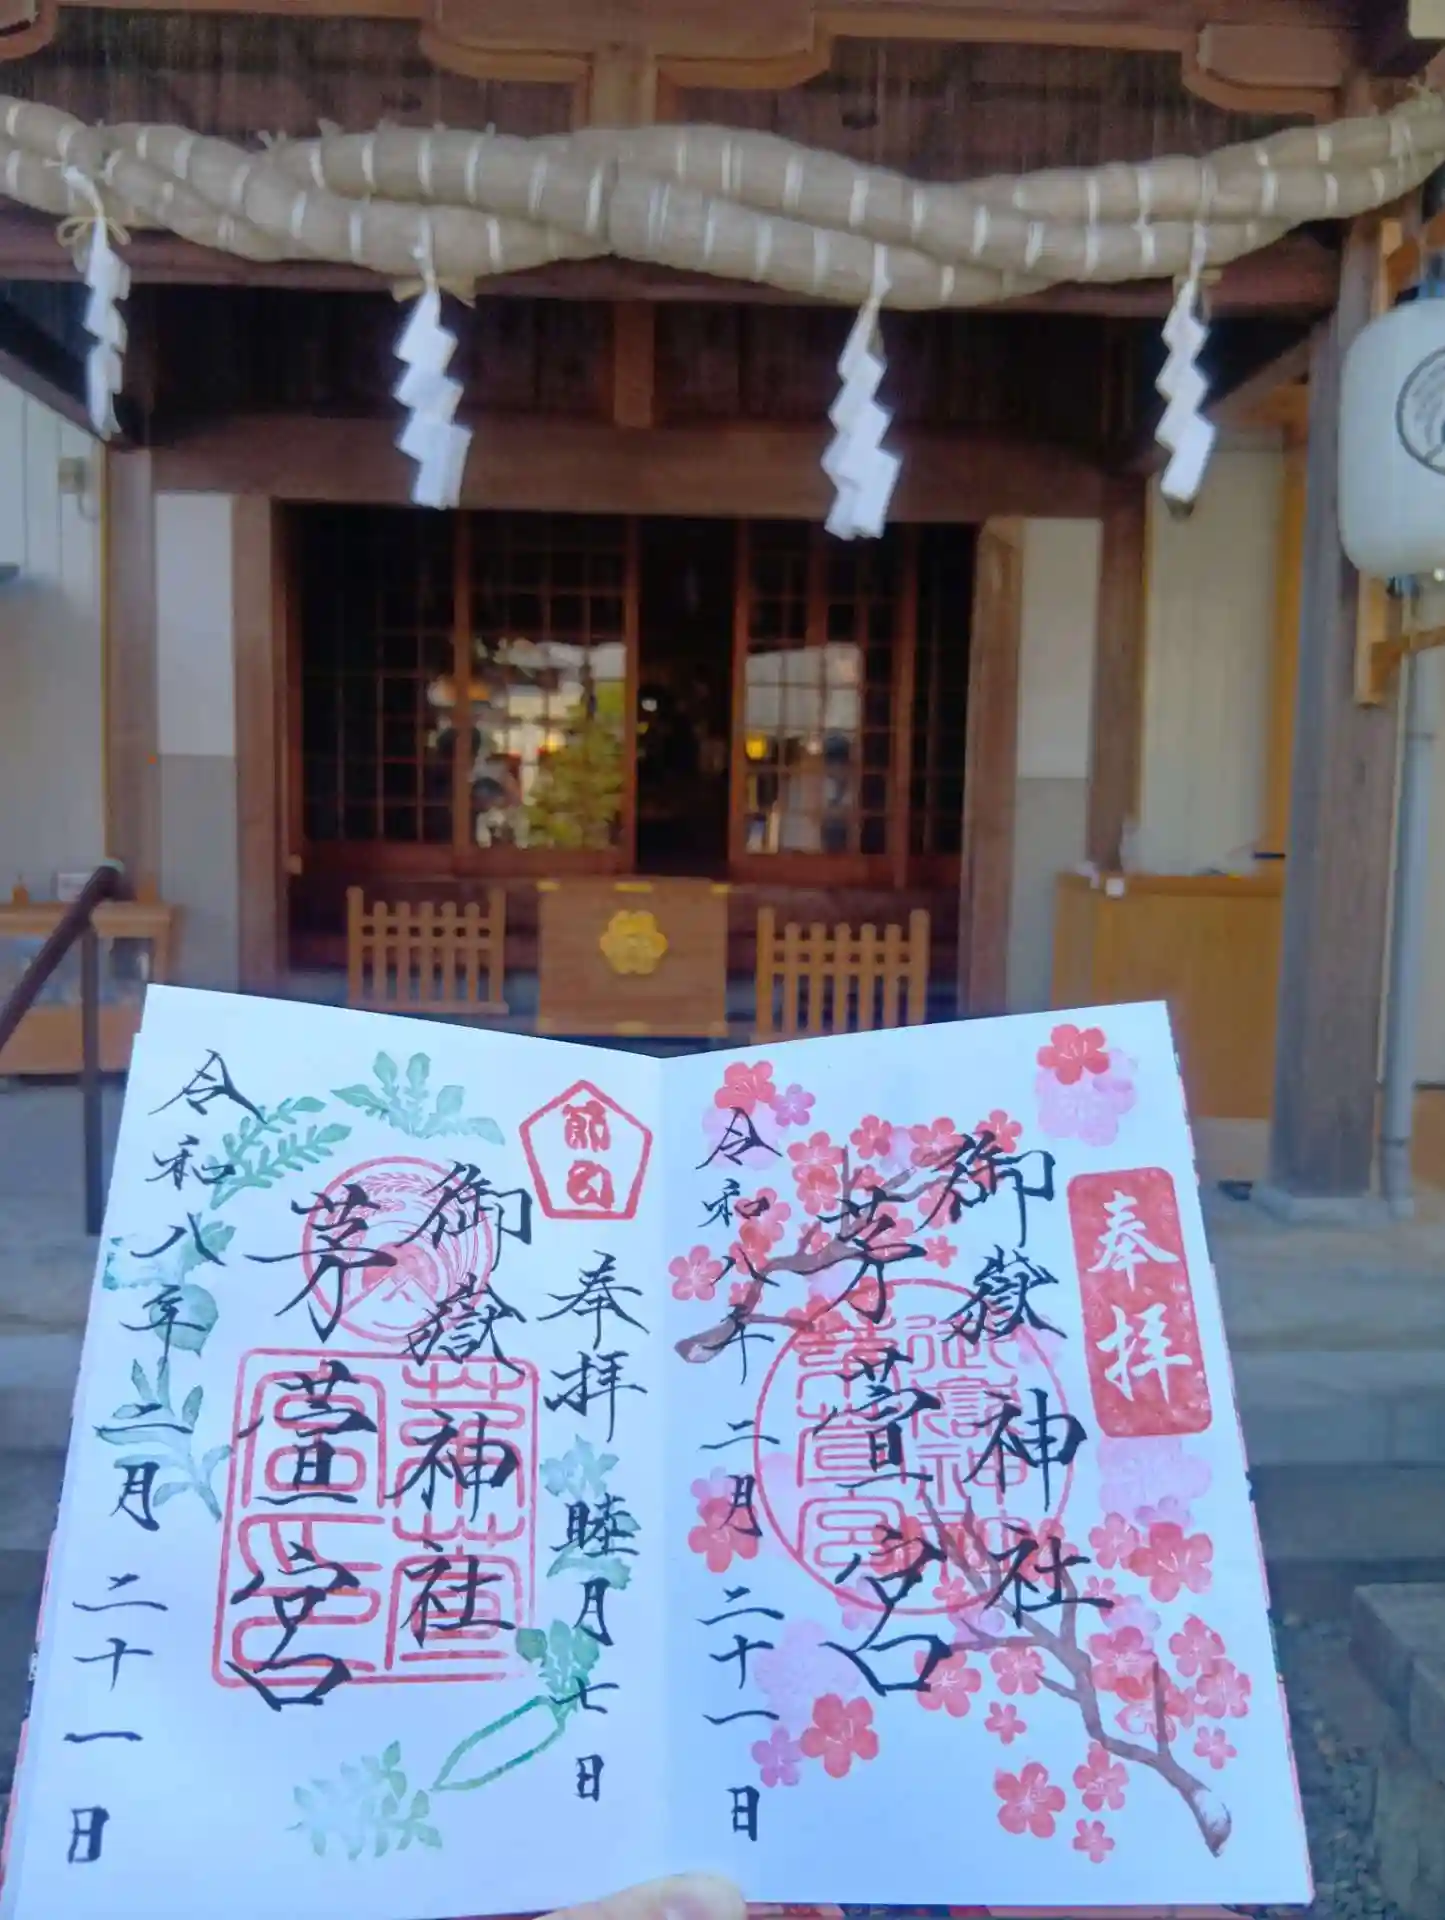 奉拝
御嶽神社
茅萱宮
御嶽神社
茅萱宮
令和八年二月二十一日
節句
奉拝 睦月七日
御嶽神社
茅萱宮
令和八年二月二十一日